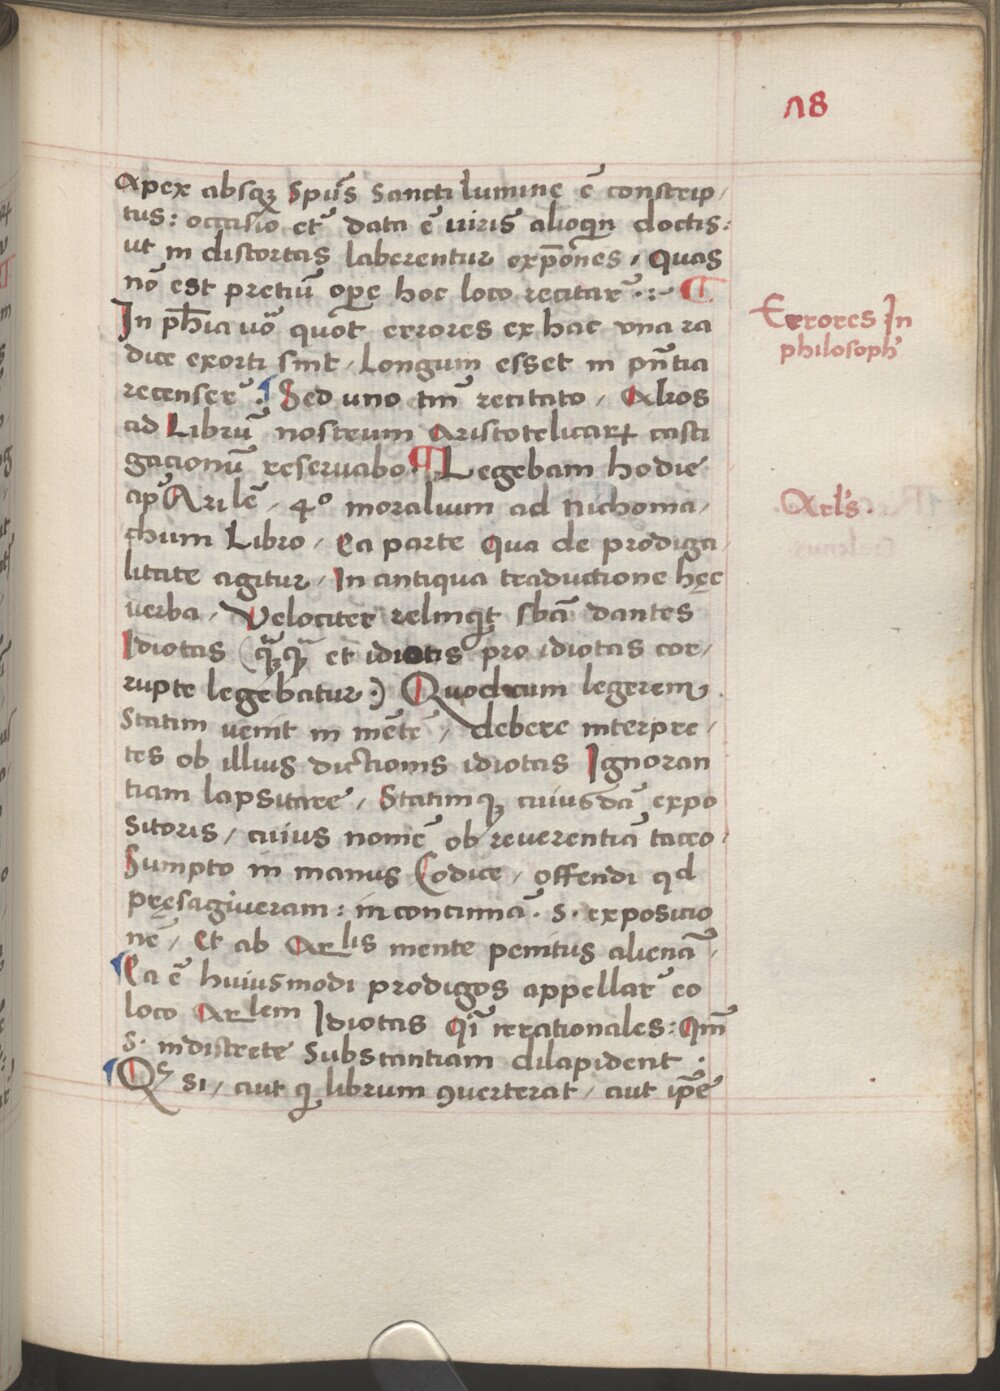 18
apex absqȝ Spūs Sancti lumine ē conscrip/
tus: occasio et̄ data ē uiris alioqin doctis:
ut in distortas laberentur exp̄ones. Quas
nō est pretiū oper̄e hoc loco recitar̄ ·:~ ¶
In ph̄ia uō quot errores ex hac una ra
dice exorti sint / longum esset in pn̄tia
recenser̄ : ¶ Sed uno tm̄ recitato / Alios
ad Librū nostrum Aristotelicarꝝ casti
gacionū reseruabo ¶ Legebam hodie
ap̄ Ar̄lē / 4º moralium ad Nichoma/
chum Libro / Ea parte Qua de prodiga/
litate agitur / In antiqua traductione hęc
uerba / Velociter relinqit sb̄ā dantes
Idiotas (qȝqȝ et idiotis pro idiotas cor/
rupte legebatur·) Quod cum legerem
Statim uenit in mētē / debere interpre/
tes ob illius dictionis idiotas Ignoran
tiam lapsitare / Statimqȝ cuiusdā expo
sitoris / cuius nomē ob reuerentiā taceo /
Sumpto in manus Codice / offendi qd
pręsagiueram: incontinnā · s · exposicio
nē / et ab Arlis mente penitus alienā /
Ea ē huiusmodi prodigos appellar̄ eo
loco Arlem Idiotas qī irrationales: Qm̄
s · indiscrete Substantiam dilapident ·
Qꝫ si / aut qi librum ꝯuerterat / aut ip̄e
Errores In
philosoph̄
Arl̄s ·